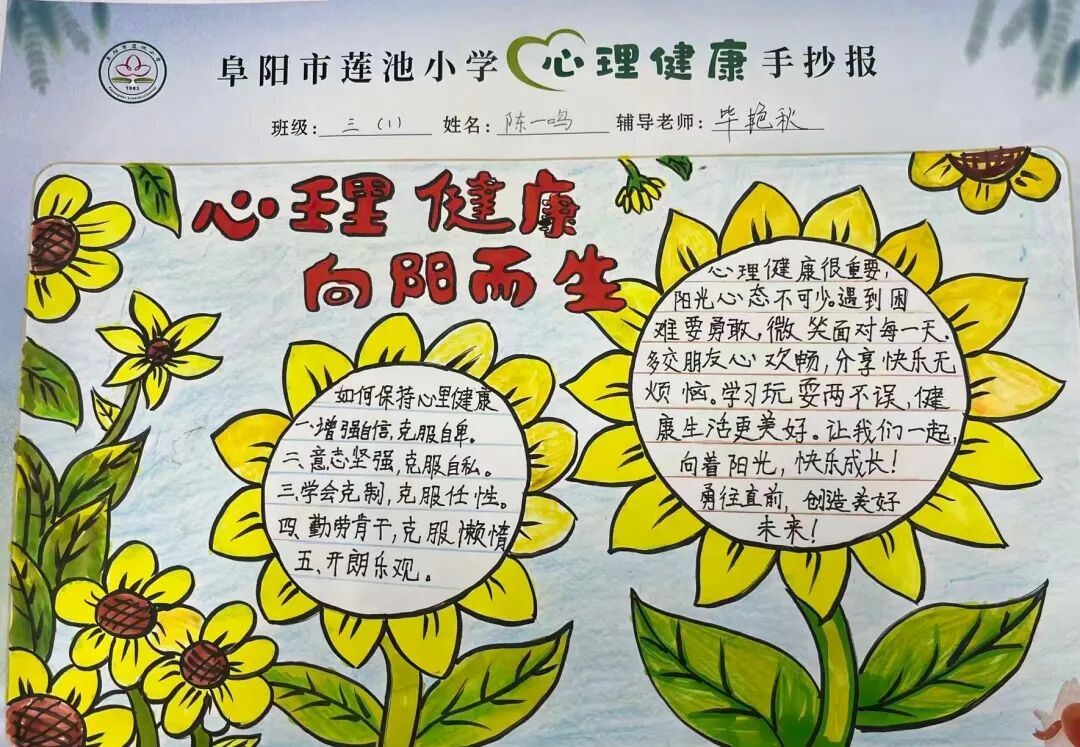 阜阳市莲池小学心理健康手抄报
班级:三(1) 姓名:陈一鸣 辅导老师:毕艳秋
心理健康
向阳而生
如何保持心里健康
一.增强自信,克服自卑。
二、意志坚强,克服自私。
三.学会克制,克服任性。
四.勤劳肯干,克服懒惰
五、开朗乐观。
心理健康很重要,
阳光心态不可少。遇到困
难要勇敢,微笑面对每一天.
多交朋友心欢畅,分享快乐无
烦恼。学习玩耍两不误,健
康生活更美好。让我们一起,
向着阳光,快乐成长!
勇往直前,创造美好
未来!